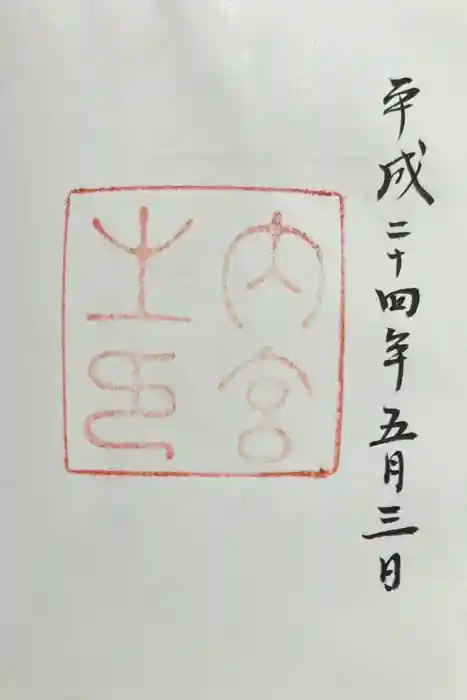 平成二十四年五月三日
内宮
之印